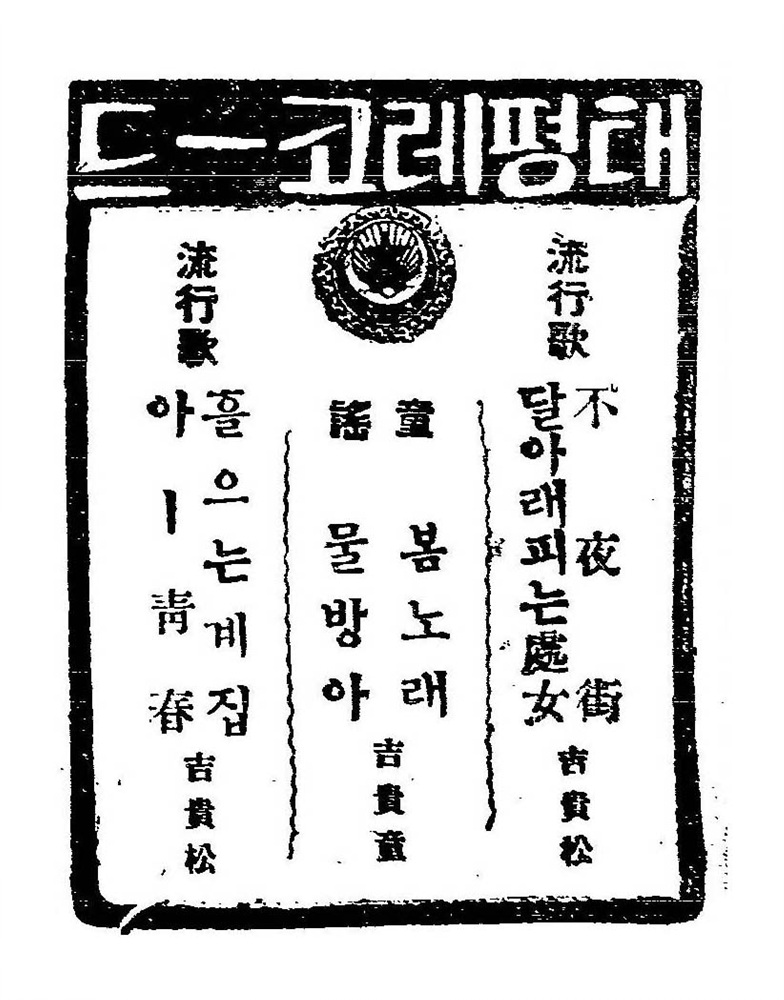 태평레코ー드
流行歌
不夜街
달아래피는處女
吉貴松
童謠
봄노래
물방아
吉貴童
流行歌
흘으는계집
아ー靑春
吉貴松